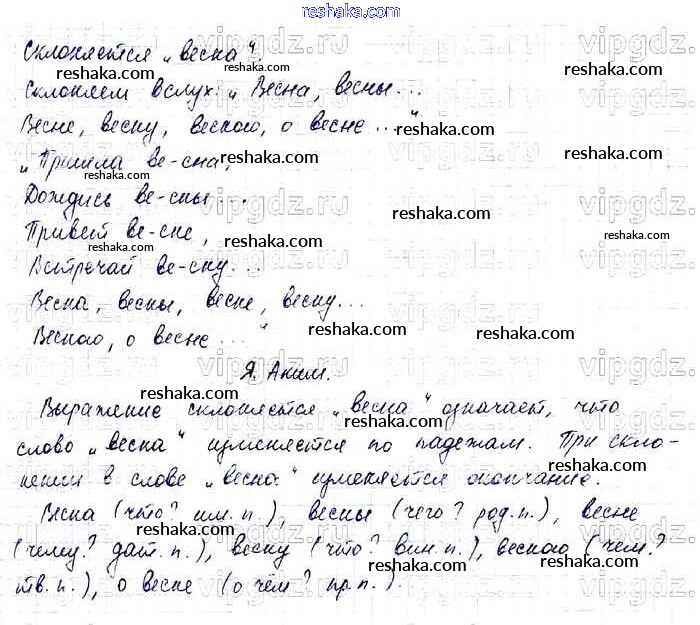 reshaka.com
Склоняется „весна“.
Склоняем вслух: „Весна, весны...
Весне, весну, весною, о весне ...“
„Пришла ве-сна,
Дождись ве-сны...
Привет ве-сне,
Встречай ве-сну...
Весна, весны, весне, весну...
Весною, о весне ...“
Я. Аким.
Выражение склоняется „весна“ означает, что
слово „весна“ изменяется по падежам. При скло-
нении в слове „весна“ изменяется окончание.
Весна (что? им. п.), весны (чего? род. п.), весне
(чему? дат. п.), весну (что? вин. п.), весною (чем?
тв. п.), о весне (о чём? пр. п.).